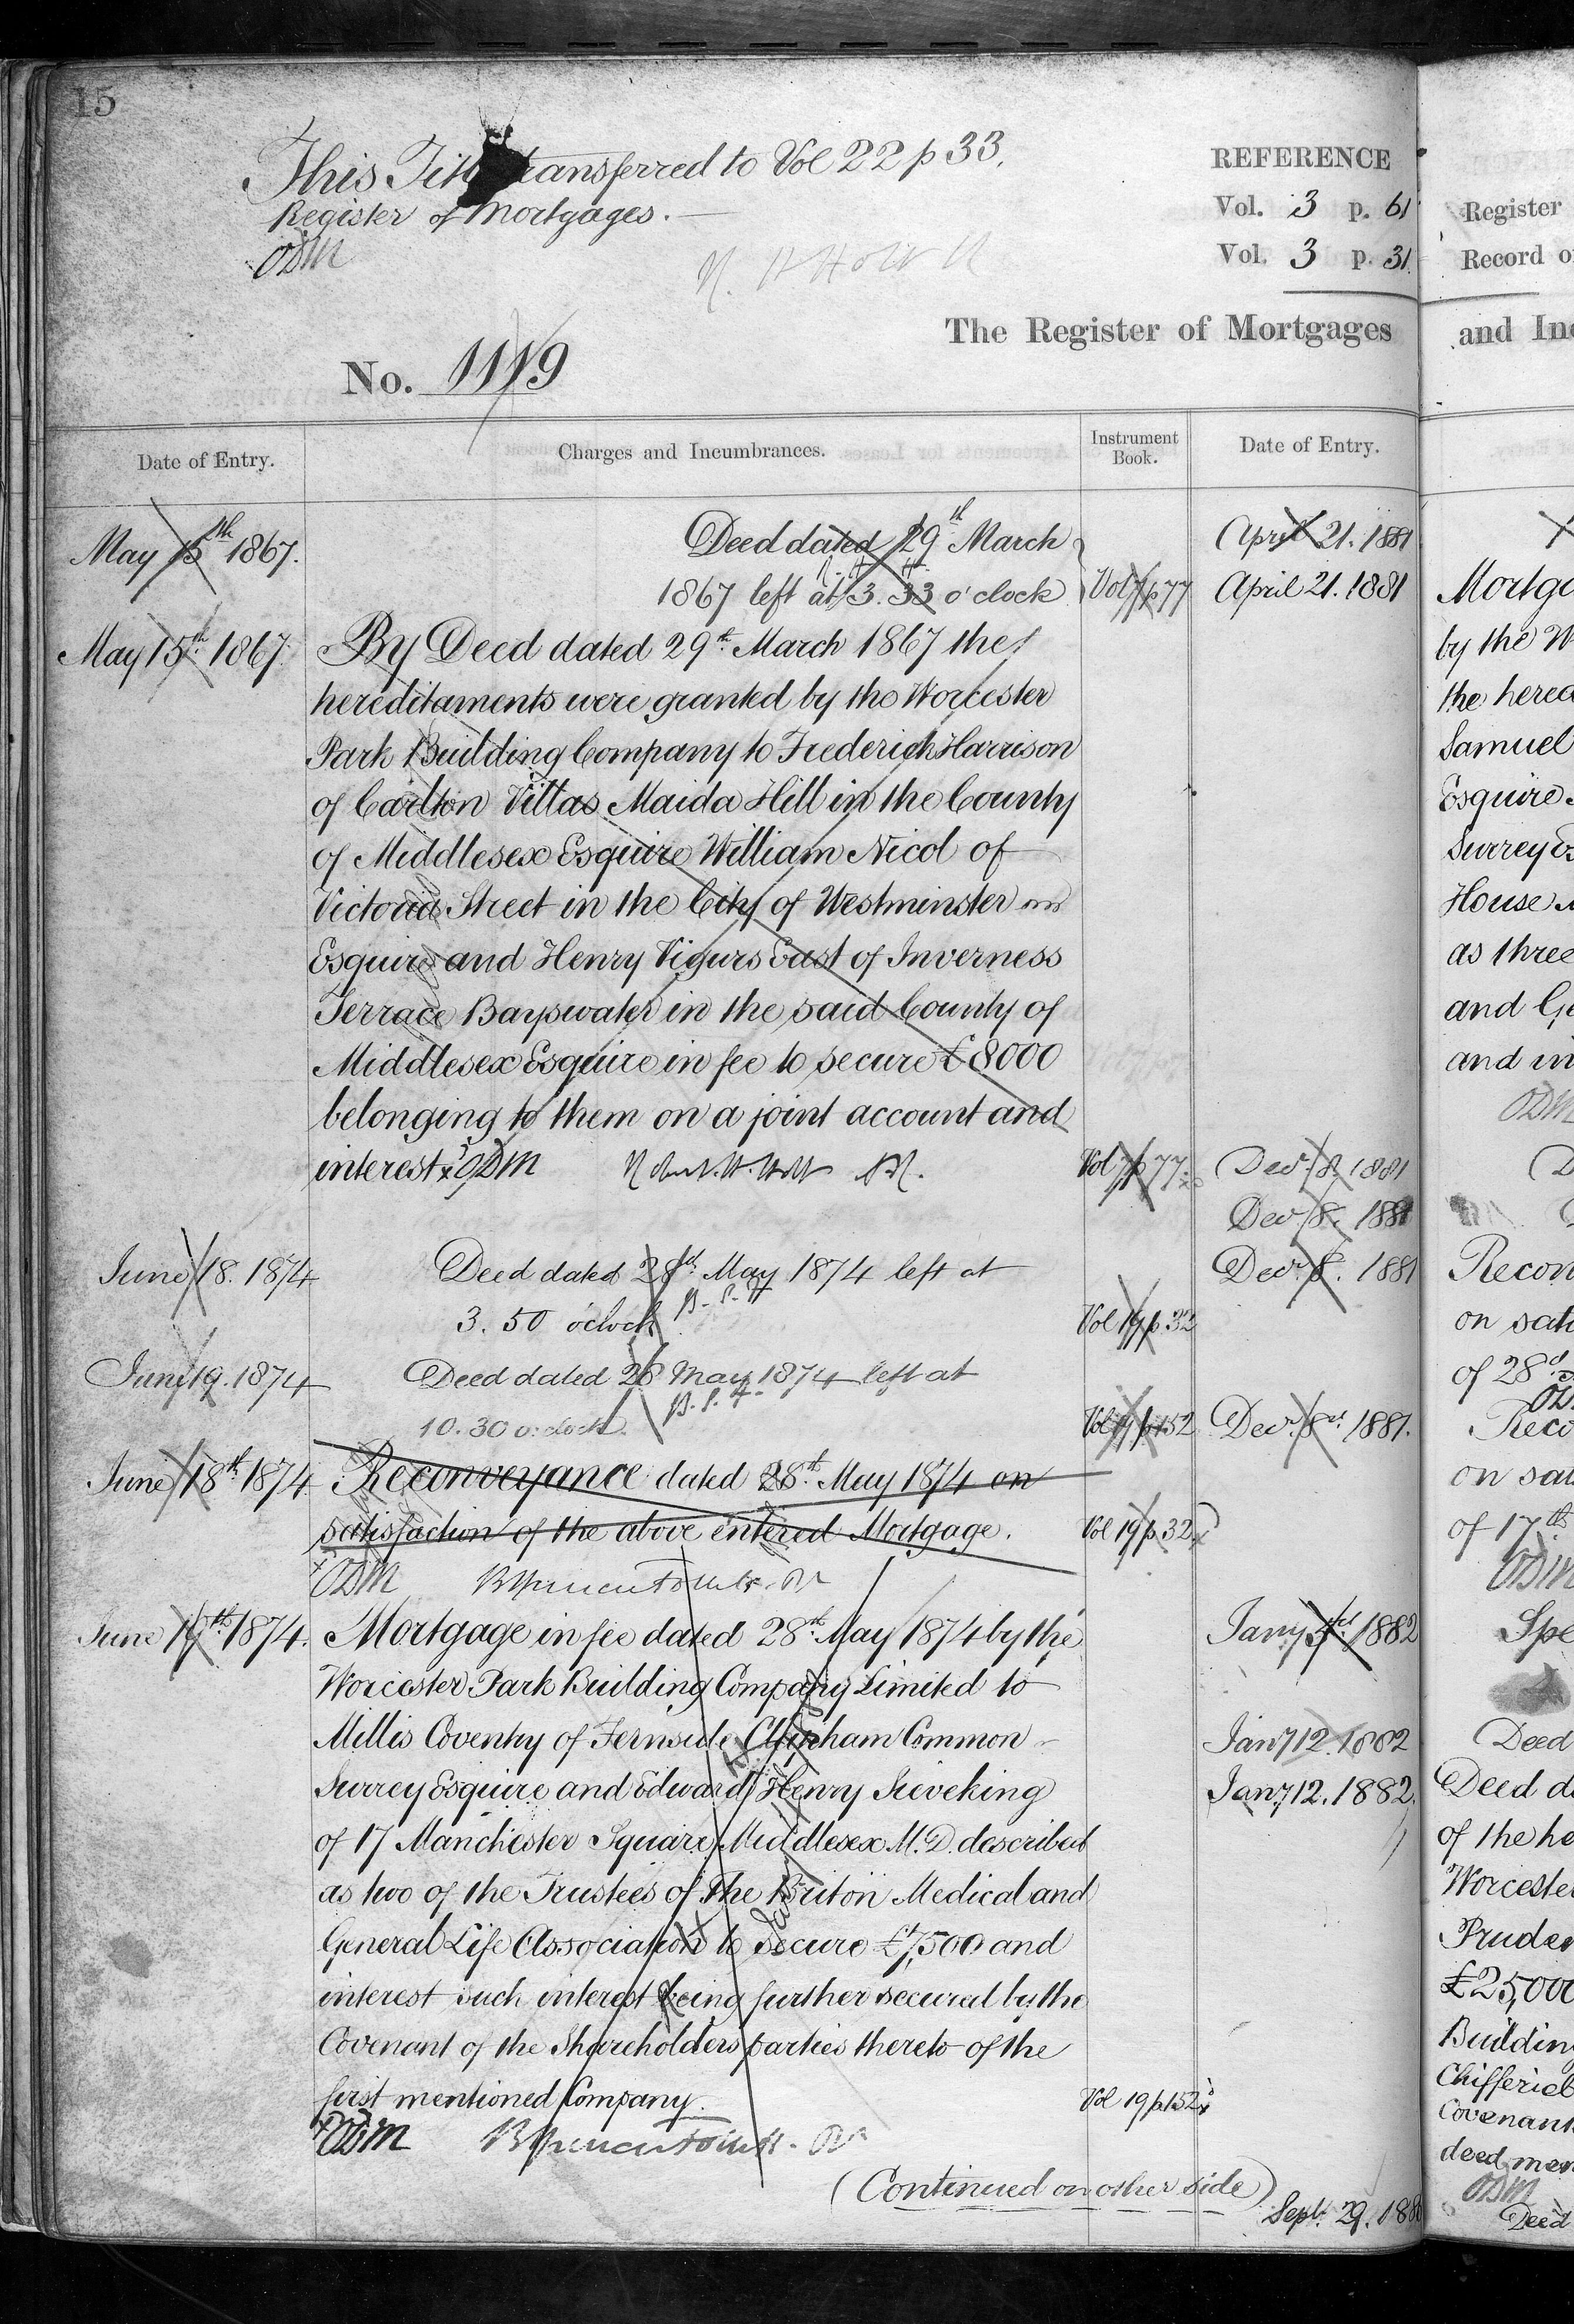 15
This Title transferred to Vol 22 p 33.
Register of Mortgages.
ODM
REFERENCE
Vol. 3 p. 61
Vol. 3 p. 31
Register
Record
The Register of Mortgages
and
No. 1119
Date of Entry.
Charges and Incumbrances.
Instrument Book.
Date of Entry.
May 15th 1867.
Deed dated 29th March
1867 left at 3.33 o'clock
Vol 7 p 77
April 21. 1881
April 21. 1881
May 15th 1867.
By Deed dated 29th March 1867 the
hereditaments were granted by the Worcester
Park Building Company to Frederick Harrison
of Carlton Villas Maida Hill in the County
of Middlesex Esquire William Nicol of
Victoria Street in the City of Westminster
Esquire and Henry Vigurs East of Inverness
Terrace Bayswater in the said County of
Middlesex Esquire in fee to secure £8000
belonging to them on a joint account and
interest ODM
Vol 7 p 77
Decr 8. 1881
Decr 8. 1881
June 18. 1874
Deed dated 28th May 1874 left at
3.50 o'clock
Vol 19 p. 32
Decr 8. 1881
June 19. 1874
Deed dated 28 May 1874 left at
10.30 o'clock
Vol 19 p 152
Decr 8th 1881.
June 18th 1874
Reconveyance dated 28th May 1874 on
satisfaction of the above entered Mortgage.
Vol 19 p. 32
ODM
June 19th 1874.
Mortgage in fee dated 28th May 1874 by the
Worcester Park Building Company Limited to
Millis Coventry of Fernside Clapham Common
Surrey Esquire and Edward Henry Sieveking
of 17 Manchester Square Middlesex M.D. described
as two of the Trustees of The Briton Medical and
General Life Association to secure £7,500 and
interest such interest being further secured by the
Covenant of the Shareholders parties thereto of the
first mentioned Company.
Vol 19 p 152
ODM
Jany 3rd 1882
Jany 12. 1882
Jany 12. 1882.
(Continued on other side)
Sept. 29. 188
by the
the
Samuel
Esquire
Surrey
House
as three
and
and in
ODM
on
of 28
on
of 17th
ODM
Deed
Deed
of the
Worcester
£25,000
Building
Covenant
deed
ODM
Deed